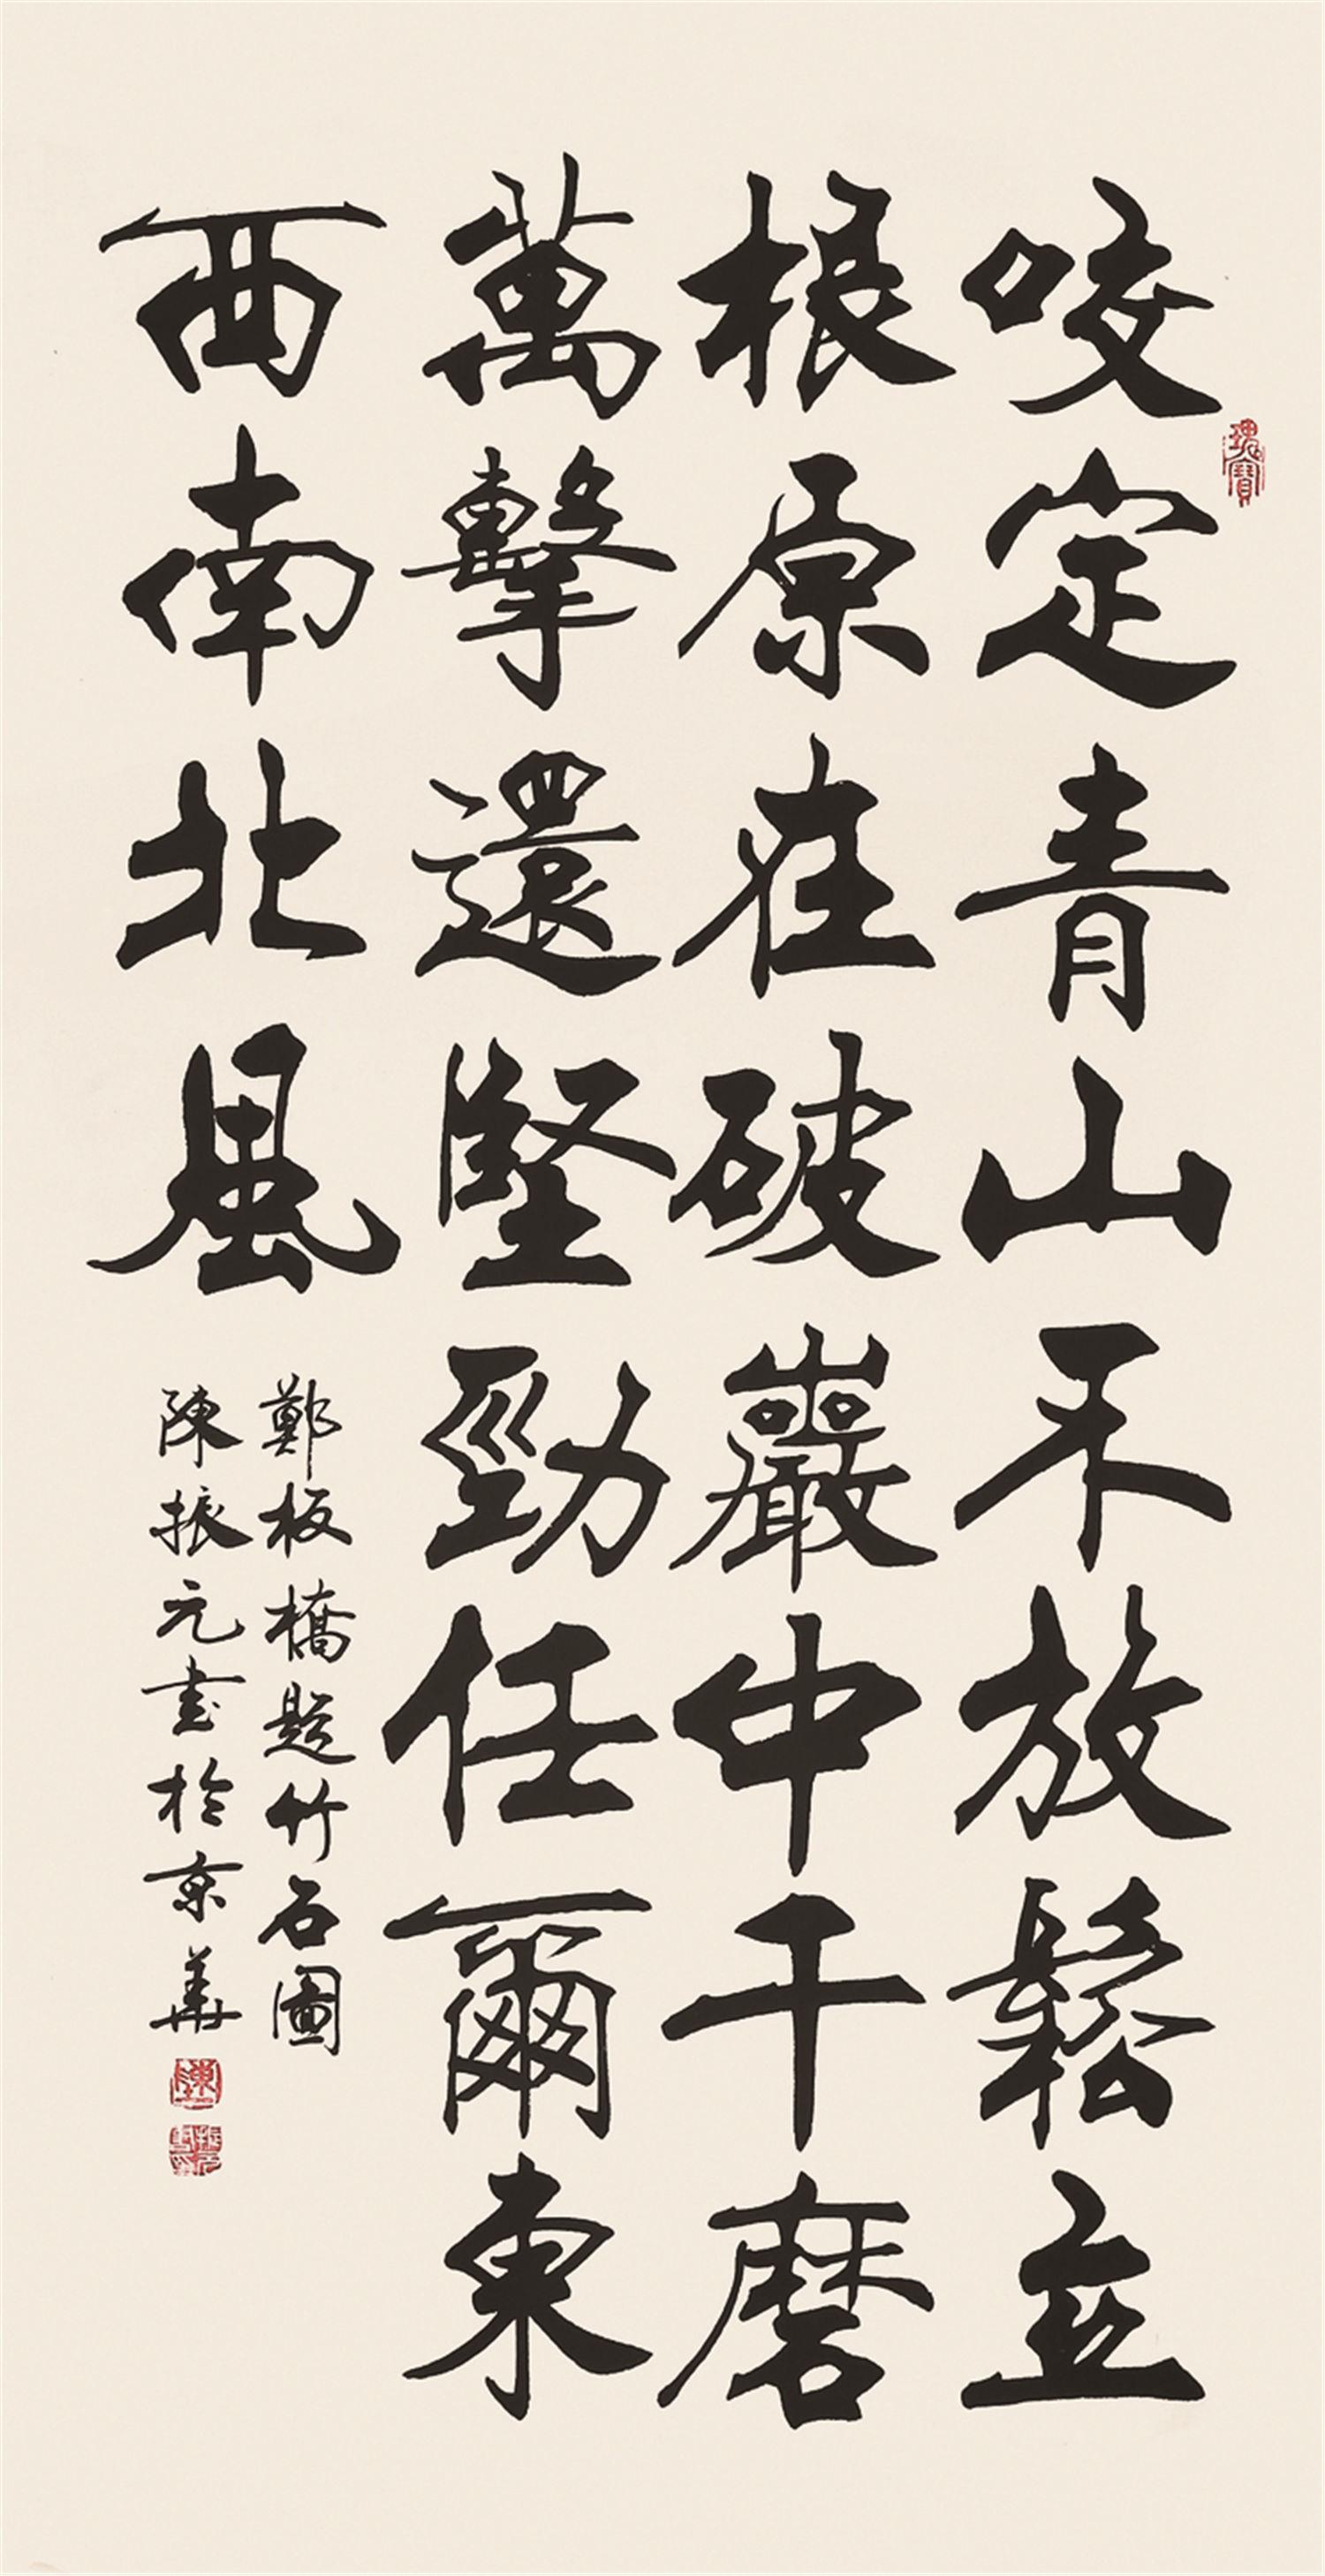 咬定青山不放鬆立
根原在破巖中千磨
萬擊還堅勁任爾東
西南北風
鄭板橋題竹石圖
陳振元書於京華
瑰寶